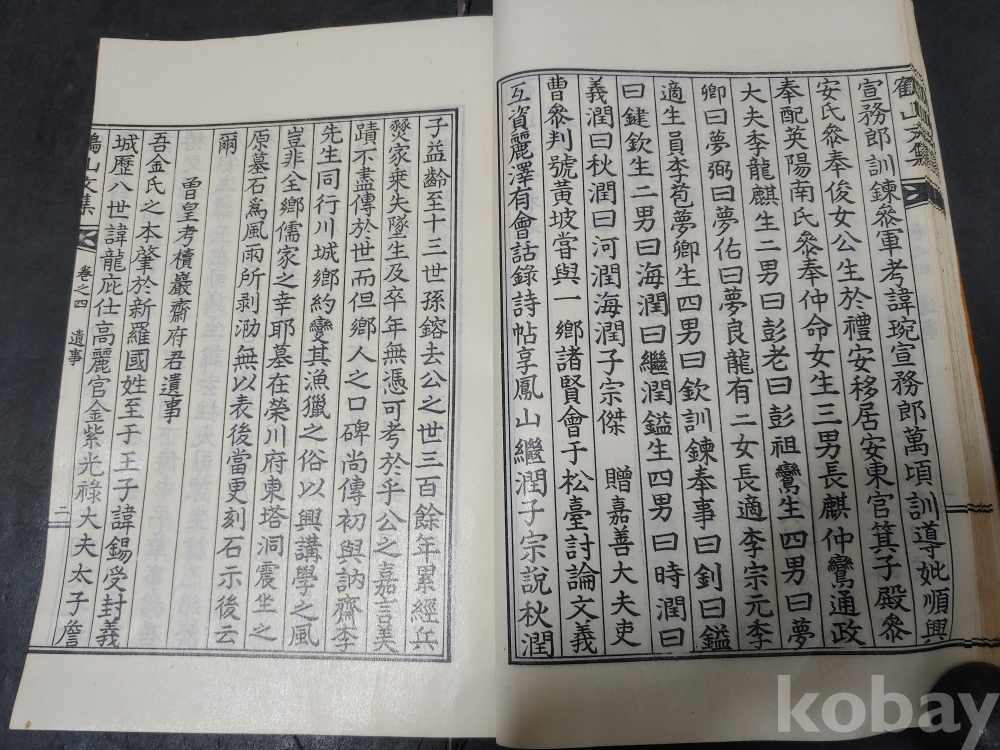 宣務郎訓鍊叅軍考諱琬宣務郎萬頃訓導妣順興
安氏叅奉俊女公生於禮安移居安東官箕子殿叅
奉配英陽南氏叅奉仲命女生三男長麒仲鸞通政
大夫李龍麒生二男曰彭老曰彭祖鸞生四男曰夢
卿曰夢弼曰夢佑曰夢良龍有二女長適李宗元李
適生員李苞夢卿生四男曰欽訓鍊奉事曰釗曰鎰
曰鍵欽生二男曰海潤曰繼潤鎰生四男曰時潤曰
義潤曰秋潤曰河潤海潤子宗傑 贈嘉善大夫吏
曹叅判號黃坡嘗與一鄕諸賢會于松臺討論文義
互資麗澤有會話錄詩帖享鳳山繼潤子宗說秋潤
子益齡至十三世孫鎔去公之世三百餘年累經兵
燹家乘失墜生及卒年無憑可考於乎公之嘉言美
蹟不盡傳於世而但鄕人之口碑尚傳初與訥齋李
先生同行川城鄕約變其漁獵之俗以興講學之風
豈非全鄕儒家之幸耶墓在榮川府東塔洞震坐之
原墓石爲風雨所剥泐無以表後當更刻石示後云
爾
曾皇考櫝巖齋府君遺事
吾金氏之本肇於新羅國姓至于王子諱錫受封義
城歷八世諱龍庇仕高麗官金紫光祿大夫太子詹
山文集 卷之四 遺事 二
kobay